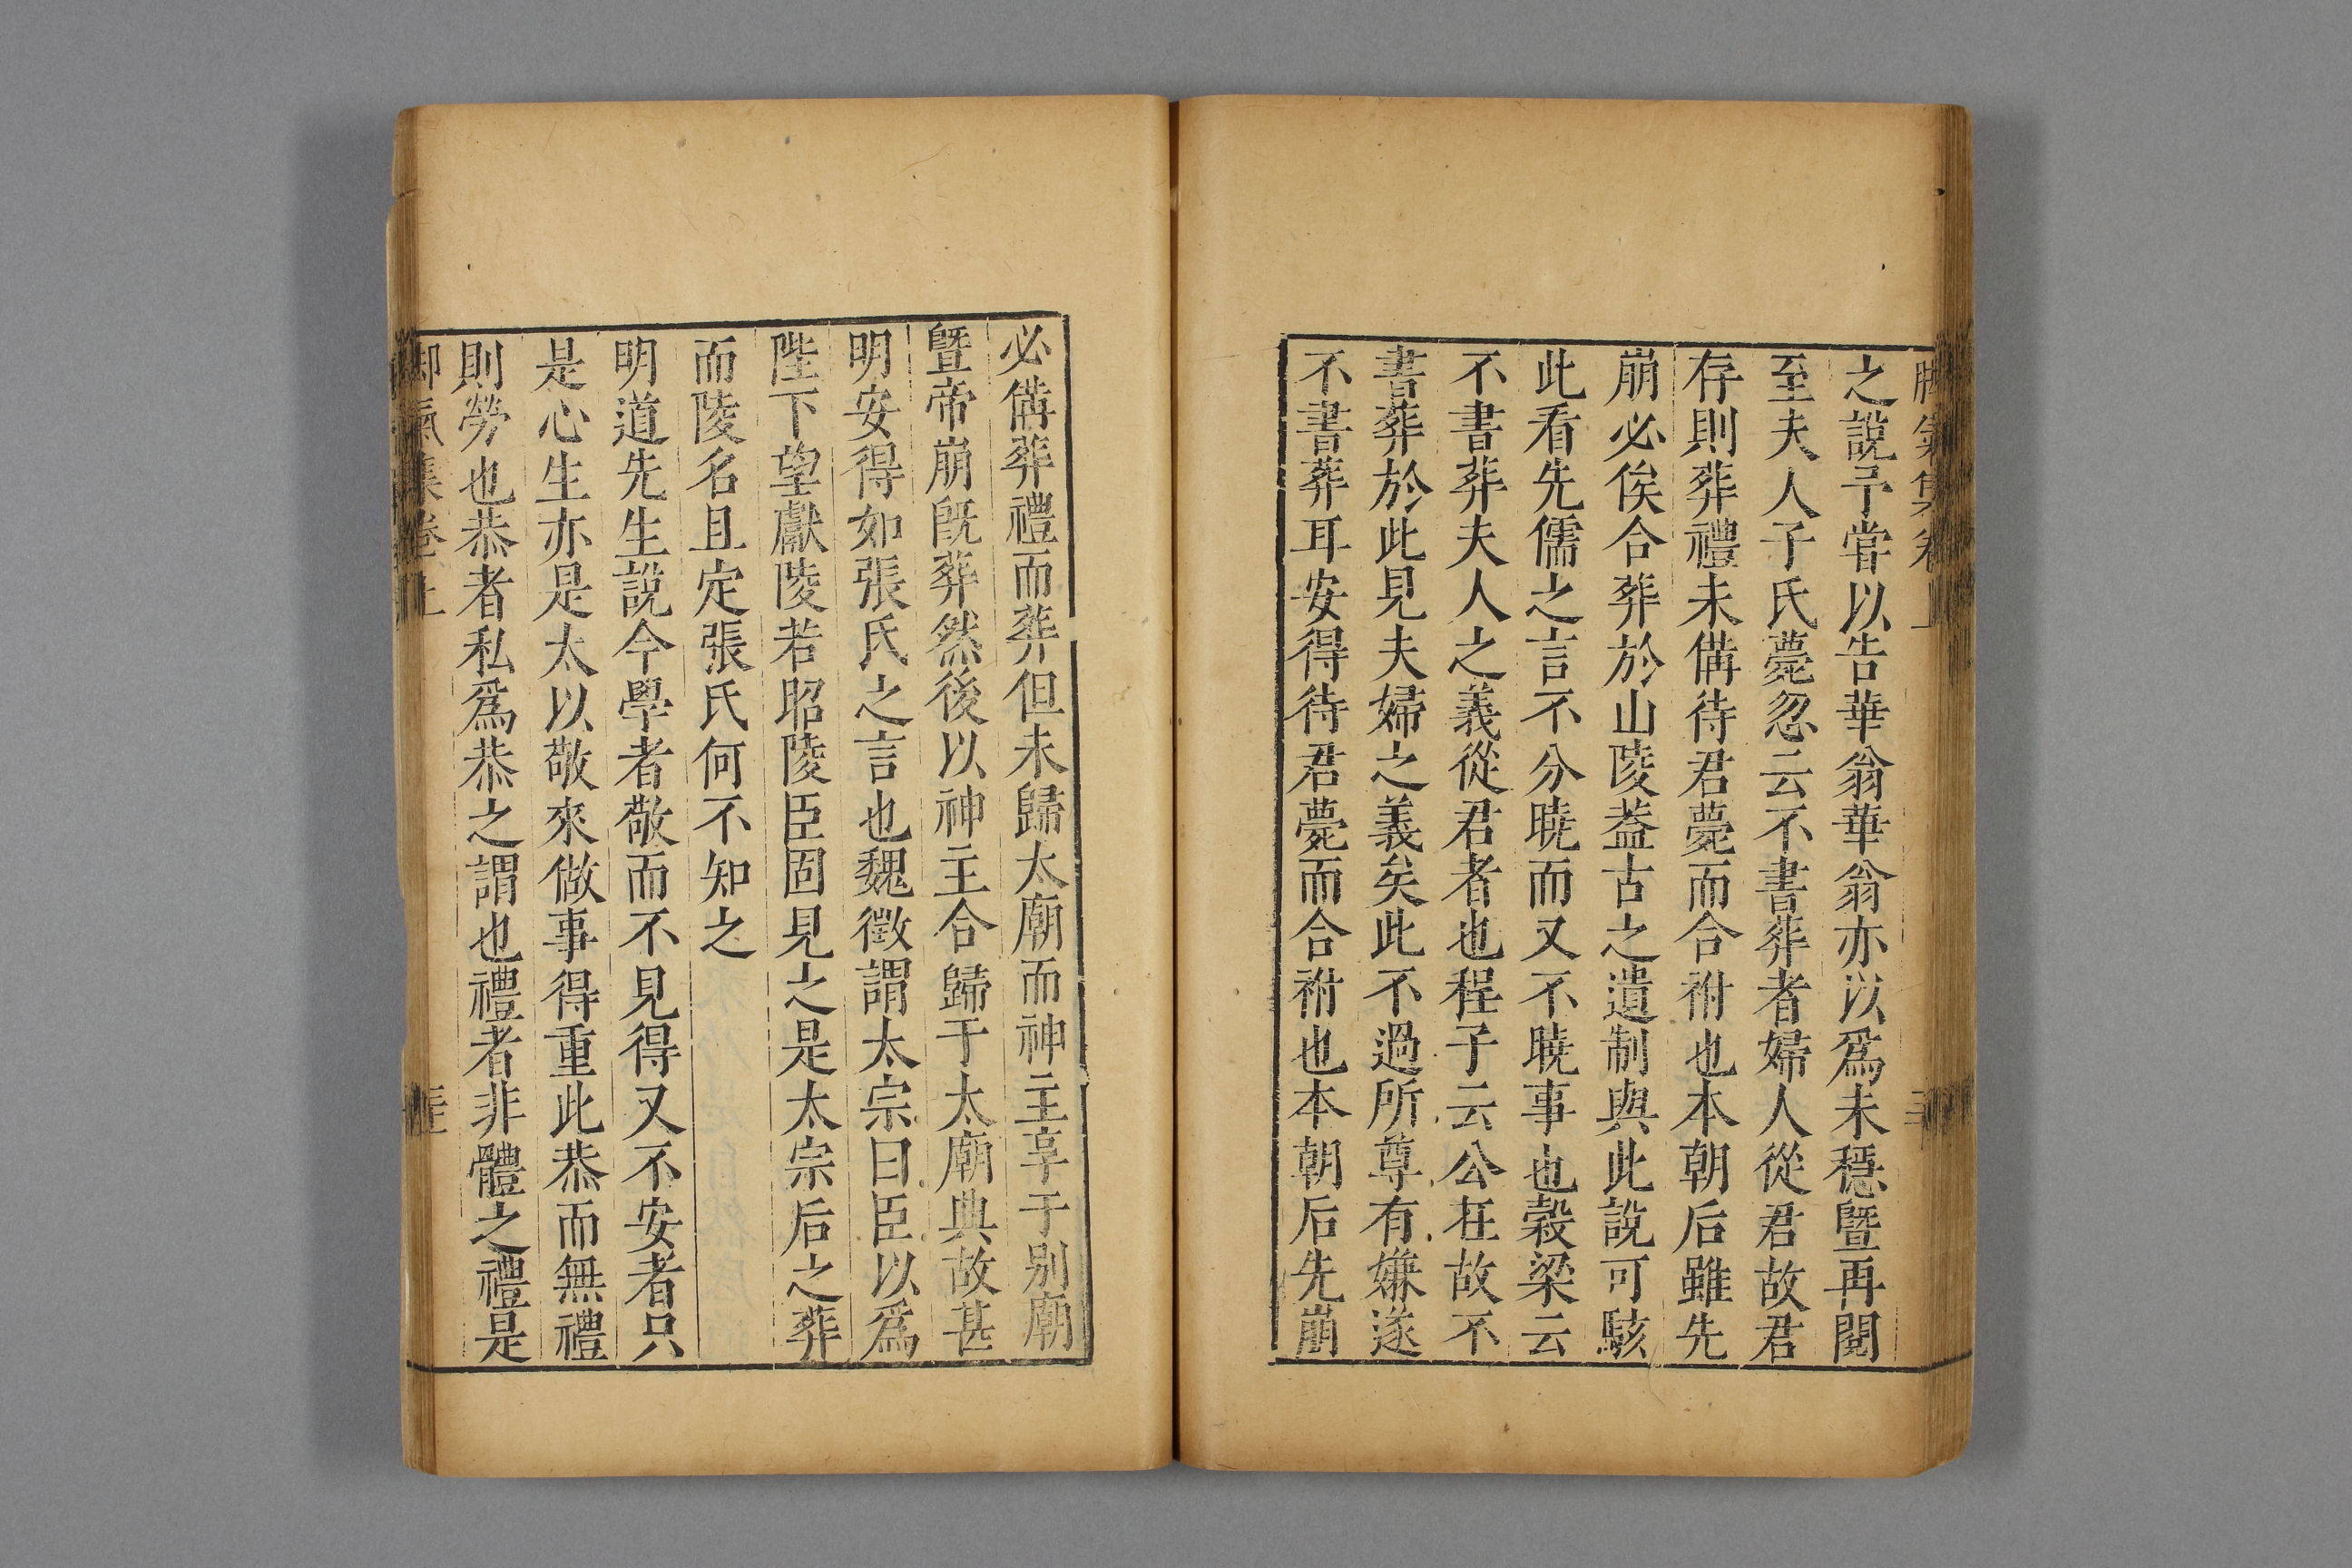 之說予嘗以告華翁華翁亦以爲未穩曁再閱
至夫人子氏薨忽云不書葬者婦人從君故君
存則葬禮未備待君薨而合祔也本朝后雖先
崩必俟合葬於山陵葢古之遺制與此說可駭
此看先儒之言不分曉而又不曉事也穀梁云
不書葬夫人之義從君者也程子云公在故不
書葬於此見夫婦之義矣此不過所尊有嫌遂
不書葬耳安得待君薨而合祔也本朝后先崩
必備葬禮而葬但未歸太廟而神主享于别廟
曁帝崩旣葬然後以神主合歸于太廟典故甚
明安得如張氏之言也魏徵謂太宗曰臣以爲
陛下望獻陵若昭陵臣固見之是太宗后之葬
而陵名且定張氏何不知之
明道先生說今學者敬而不見得又不安者只
是心生亦是太以敬來做事得重此恭而無禮
則勞也恭者私爲恭之謂也禮者非體之禮是